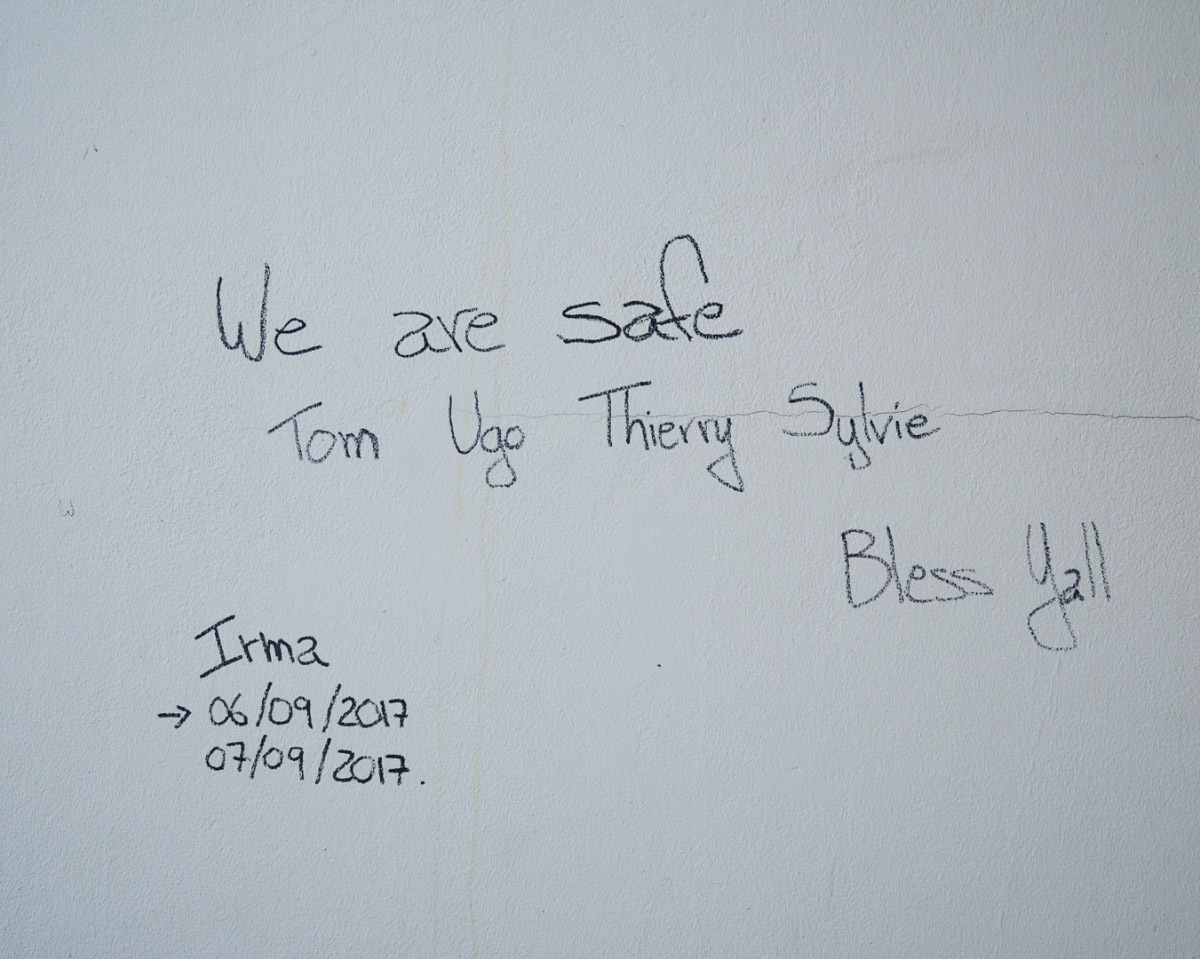 We are safe
Tom Ugo Thierry Sylvie
Bless Yall
Irma
→ 06/09/2017
07/09/2017.